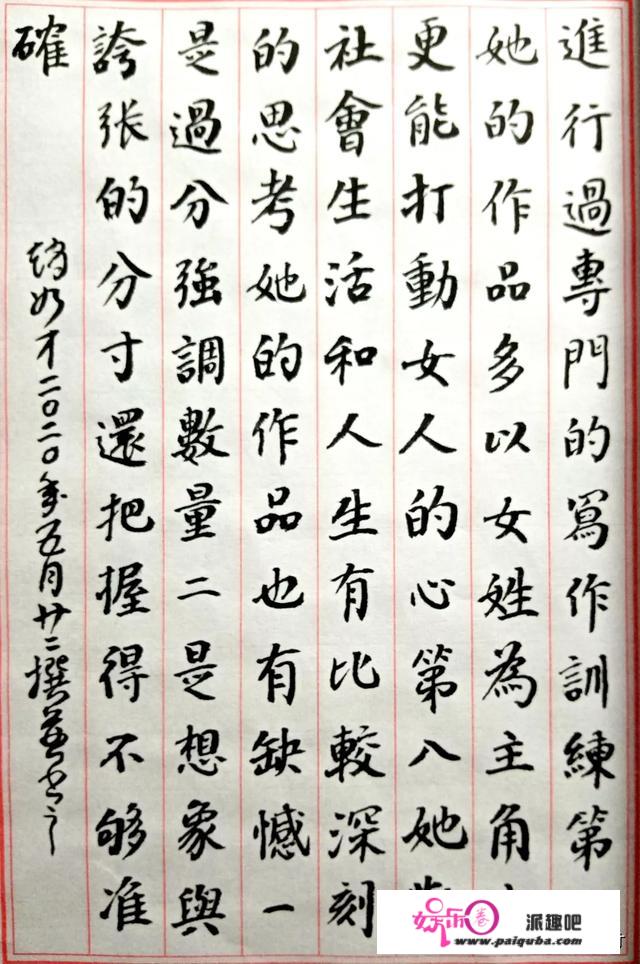 進行過專門的寫作訓練第
她的作品多以女姓為主角
更能打動女人的心第八她
社會生活和人生有比較深刻
的思考她的作品也有缺憾一
是過分強調數量二是想象與
誇张的分寸還把握得不够准
確
如才二〇二〇年五月廿二撰並书
娱乐圈
派趣吧
www.paiquba.com